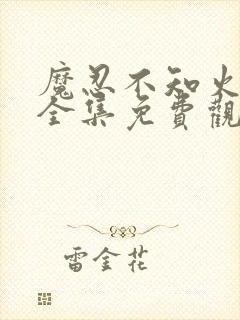 魔忍不知火
全集免費觀
雷金花